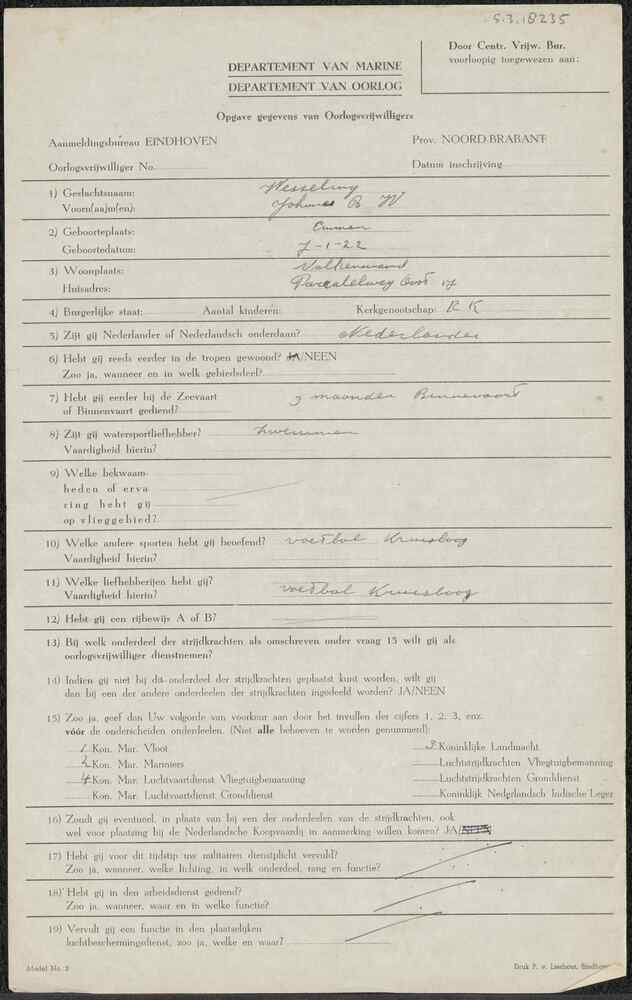 S.3.18235
Door Centr. Vrijw. Bur.
voorloopig toegewezen aan:
DEPARTEMENT VAN MARINE
DEPARTEMENT VAN OORLOG
Opgave gegevens van Oorlogsvrijwilligers
Aanmeldingsbureau EINDHOVEN
Prov. NOORD-BRABANT
Oorlogsvrijwilliger No.
Datum inschrijving
1) Geslachtsnaam: Wesseling
Voorna(a)m(en): Johannes B W
2) Geboorteplaats: Ommen
Geboortedatum: 7-1-22
3) Woonplaats: Valkenswaard
Huisadres: Parcelelweg Oost 17
4) Burgerlijke staat: Aantal kinderen: Kerkgenootschap: R K
5) Zijt gij Nederlander of Nederlandsch onderdaan? Nederlander
6) Hebt gij reeds eerder in de tropen gewoond? JA/NEEN
Zoo ja, wanneer en in welk gebiedsdeel?
7) Hebt gij eerder bij de Zeevaart
of Binnenvaart gediend? 3 maanden Binnenvaart
8) Zijt gij watersportliefhebber? zwemmen
Vaardigheid hierin?
9) Welke bekwaam-
heden of erva
ring hebt gij
op vlieggebied?
10) Welke andere sporten hebt gij beoefend? voetbal Kruisboog
Vaardigheid hierin?
11) Welke liefhebberijen hebt gij?
Vaardigheid hierin? voetbal Kruisboog
12) Hebt gij een rijbewijs A of B?
13) Bij welk onderdeel der strijdkrachten als omschreven onder vraag 15 wilt gij als
oorlogsvrijwilliger dienstnemen?
14) Indien gij niet bij dit onderdeel der strijdkrachten geplaatst kunt worden, wilt gij
dan bij een der andere onderdeelen der strijdkrachten ingedeeld worden? JA/NEEN
15) Zoo ja, geef dan Uw volgorde van voorkeur aan door het invullen der cijfers 1, 2, 3, enz.
vóór de onderscheiden onderdeelen. (Niet alle behoeven te worden genummerd):
1 Kon. Mar. Vloot
3 Koninklijke Landmacht
2 Kon. Mar. Mariniers
Luchtstrijdkrachten Vliegtuigbemanning
4 Kon. Mar. Luchtvaartdienst Vliegtuigbemanning
Luchtstrijdkrachten Gronddienst
Kon. Mar. Luchtvaartdienst Gronddienst
Koninklijk Nederlandsch Indische Leger
16) Zoudt gij eventueel, in plaats van bij een der onderdeelen van de strijdkrachten, ook
wel voor plaatsing bij de Nederlandsche Koopvaardij in aanmerking willen komen? JA/NEEN
17) Hebt gij voor dit tijdstip uw militairen dienstplicht vervuld?
Zoo ja, wanneer, welke lichting, in welk onderdeel, rang en functie?
18) Hebt gij in den arbeidsdienst gediend?
Zoo ja, wanneer, waar en in welke functie?
19) Vervult gij een functie in den plaatselijken
luchtbeschermingsdienst, zoo ja, welke en waar?
Model No. 2
Druk P. v. Lieshout, Eindhoven